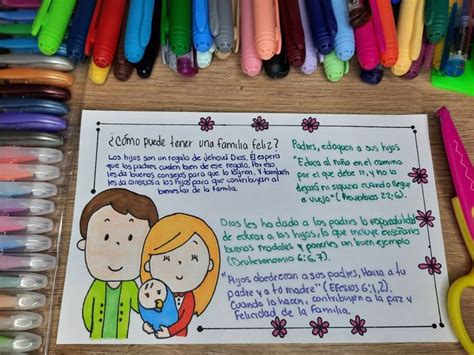 ¿Cómo puede tener una familia feliz?
Los hijos son un regalo de Jehová Dios. Él espera
que los padres cuiden bien de ese regalo. Por eso
les da buenos consejos para que lo logren. Y también
les da consejos a los hijos para que contribuyan al
bienestar de la familia.
Padres, eduquen a sus hijos
"Educa al niño en el camino
por el que debe ir, y no lo
dejará ni siquiera cuando llegue
a viejo" (Proverbios 22:6).
Dios les ha dado a los padres la responsabilidad
de educar a los hijos, lo que incluye enseñarles
buenos modales y ponerles un buen ejemplo
(Deuteronomio 6:6,7).
"Hijos obedezcan a sus padres, Honra a tu
padre y a tu madre" (Efesios 6:1,2).
Cuando lo hacen, contribuyen a la paz y
Felicidad de la familia.